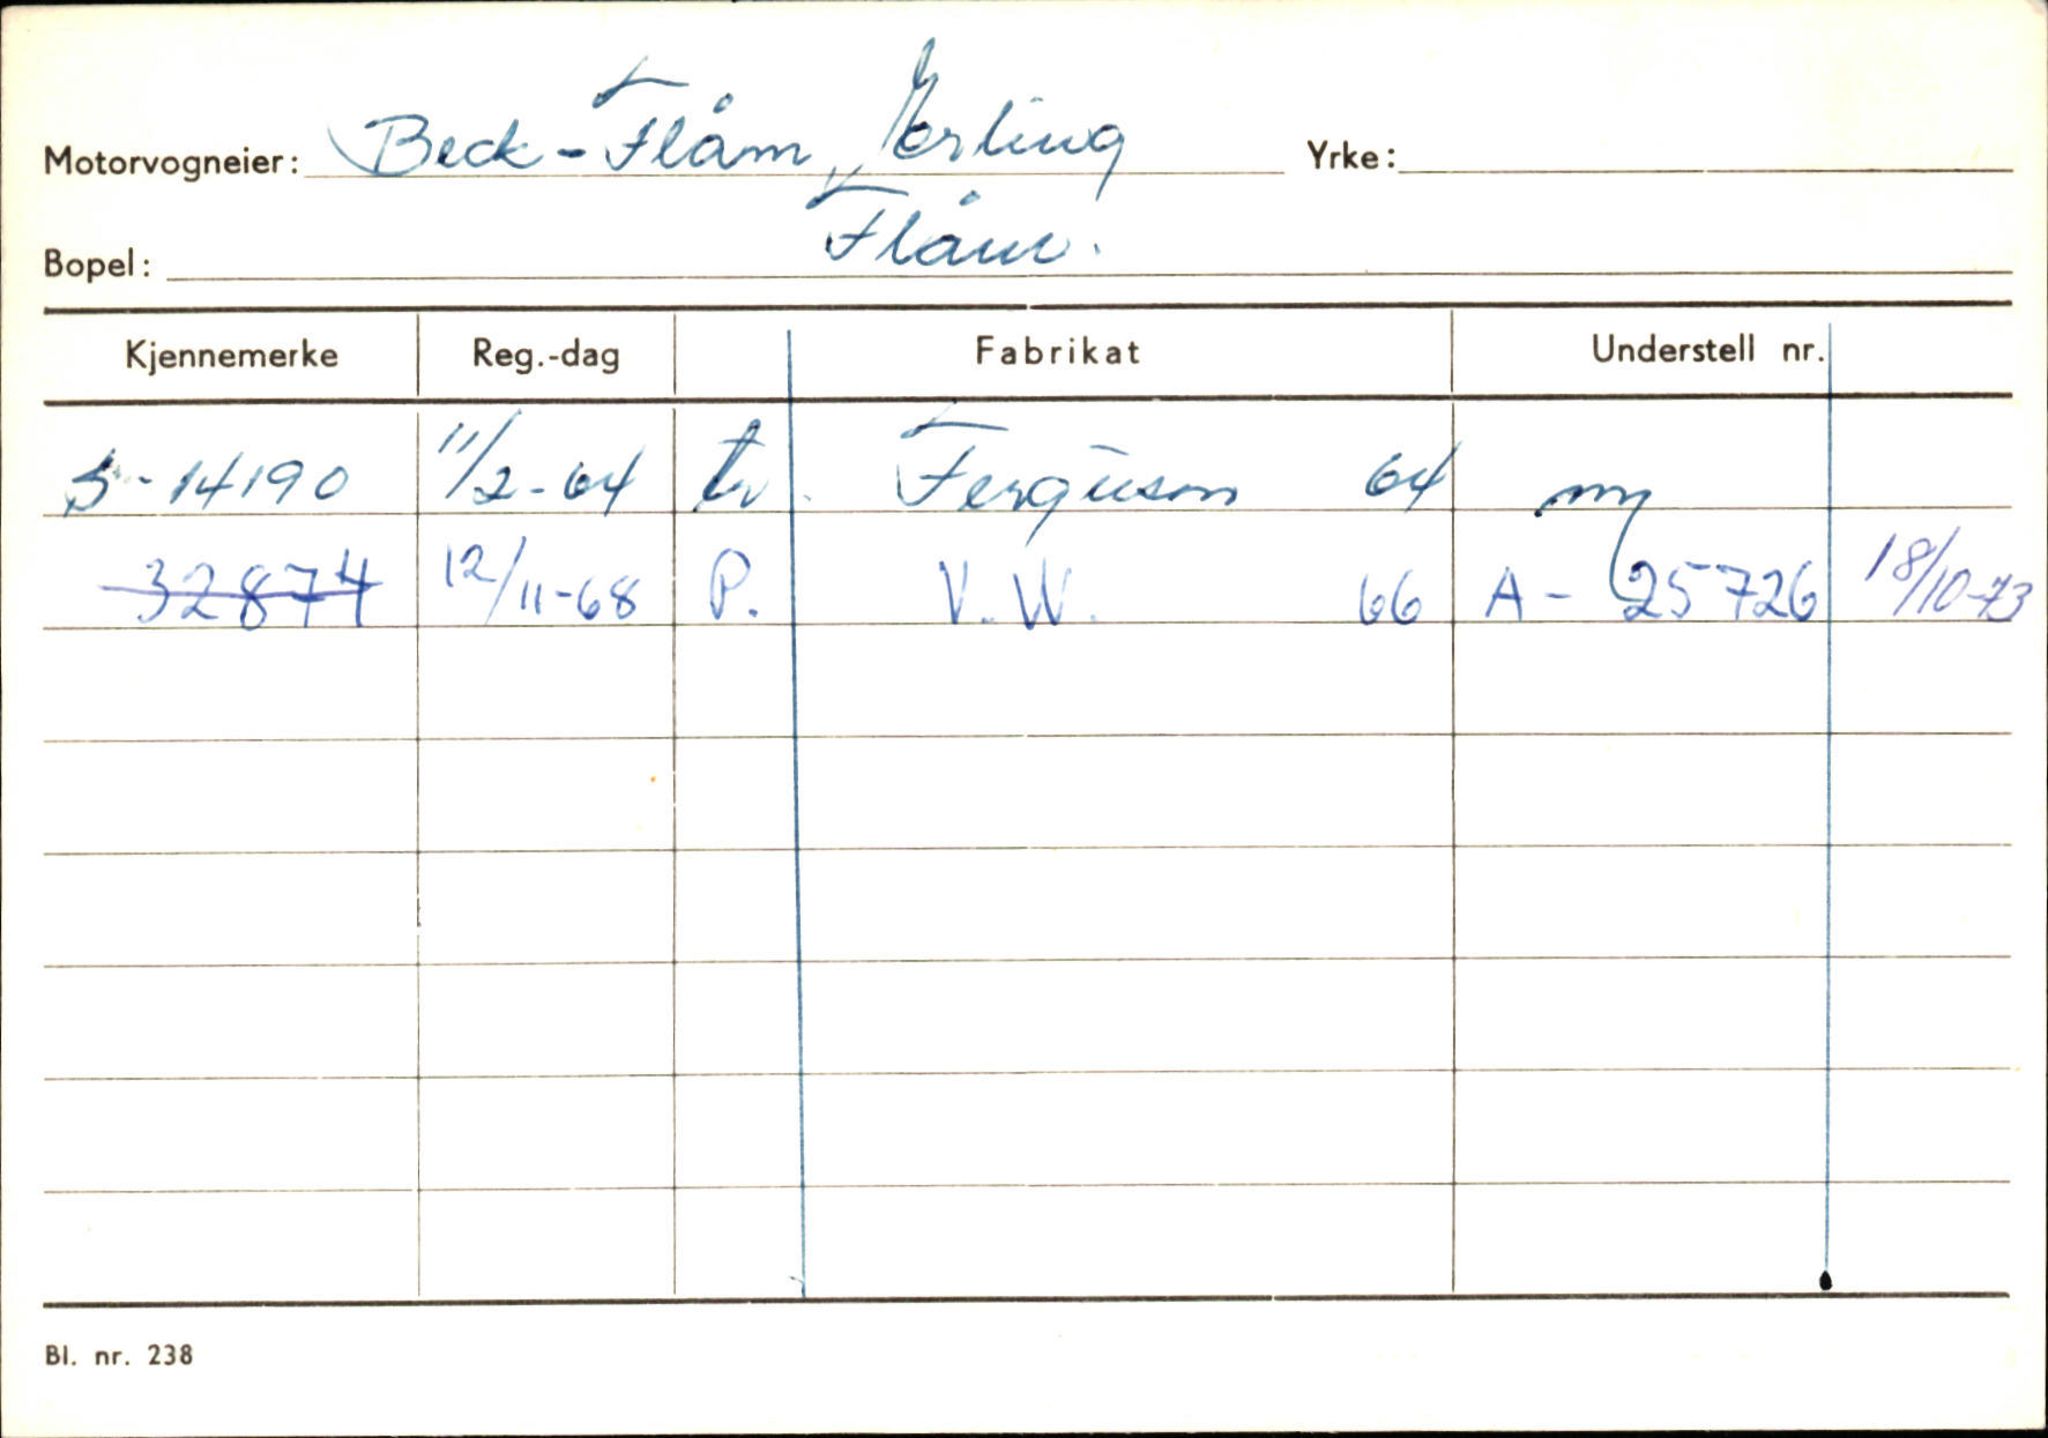 Motorvogneier: Beck-Flåm, Erling Yrke:
Bopel: Flåm.
Kjennemerke Reg.-dag Fabrikat Understell nr.
S-14190 11/2-64 tr. Ferguson 64 ny
32874 12/11-68 P. V.W. 66 A-25726 18/10-73
Bl. nr. 238